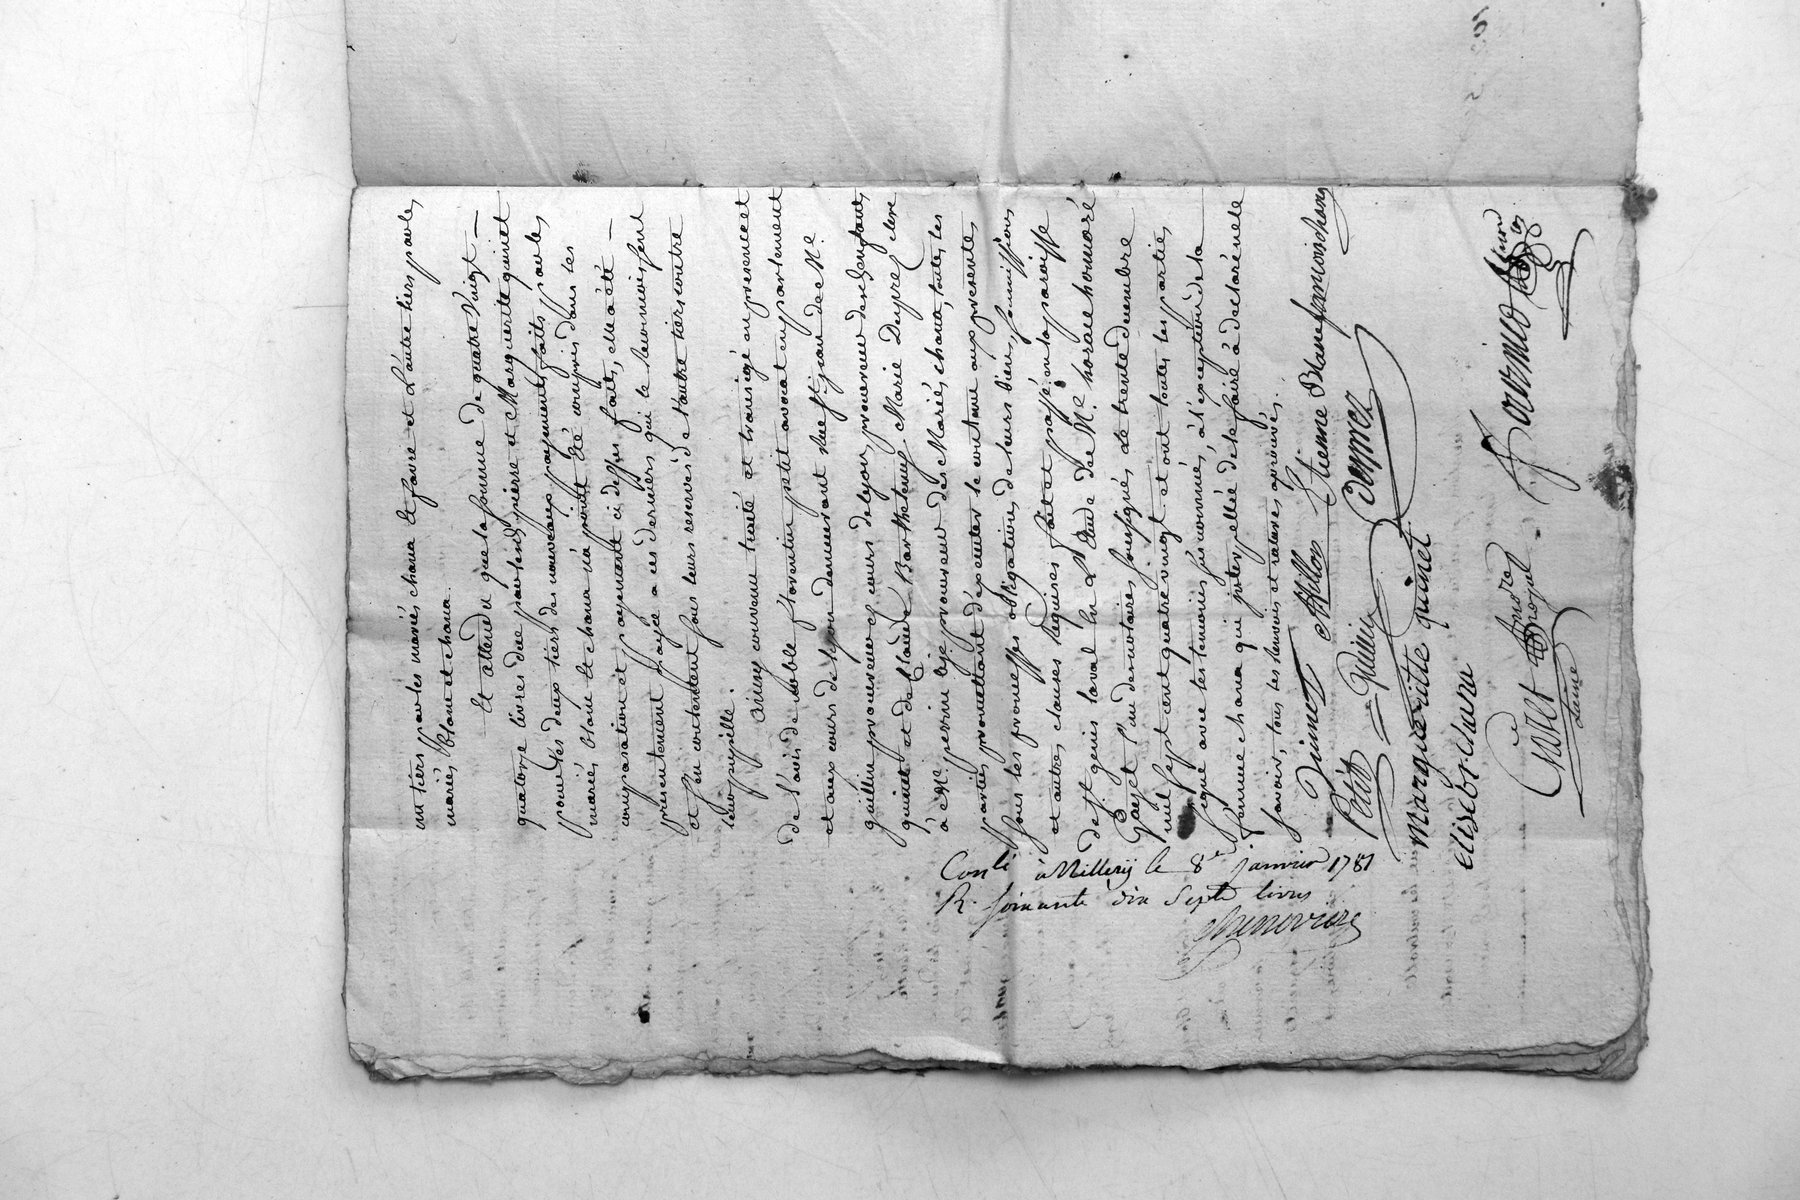 un tiers par les mariés chana et favre et l'autre tiers par les
mariés blanc et chana.
Et attendu que la somme de quatre vingt —
quatorze livres due par lesd. pierre et Marguerite quinet
pour les deux tiers des nouveaux payements faits par les
mariés blanc et chana n'a point été compris dans les
compensation et payements ci dessus faits, elle a été —
présentement payée a ces derniers qui le reconnoissent
et s'en contentent sous leurs reserves de l'autre tiers contre
leur pupille.
Ainsy convenu traité et transigé en presence et
de l'avis de noble florentin petit avocat en parlement
et aux cours de lyon demeurant rue St. jean de Me.
guillin procureur es cours de lyon, procureur des enfants
quinet et de Claude Barthelemy Marie Desprez clerc
à Me. perrin l'ainé procureur des Mariés chana, toutes les
parties promettant d'executer le contenu aux presentes
sous les promesses obligations de leurs biens, soumissions
et autres clauses requises fait et passé en la paroisse
de St. genis laval en l'Etude de Me. horace honnoré
Gayet l'un des notaires soussignés le trente decembre
mil sept cent quatre vingt et ont toutes les parties
signé avec les temoins susnommés, à l'exception de la
femme chana qui interpellée de le faire à declaré ne le
savoir, tous les renvois et ratures aprouvés.
Quinet Millon Etienne Blanc françois chana
Petit Guillin Desprez
marguerite quinet
elisebt chana
Gayet
fournereau
Conlé à Millery le 8e janvier 1781
R. soixante dix Sept livres